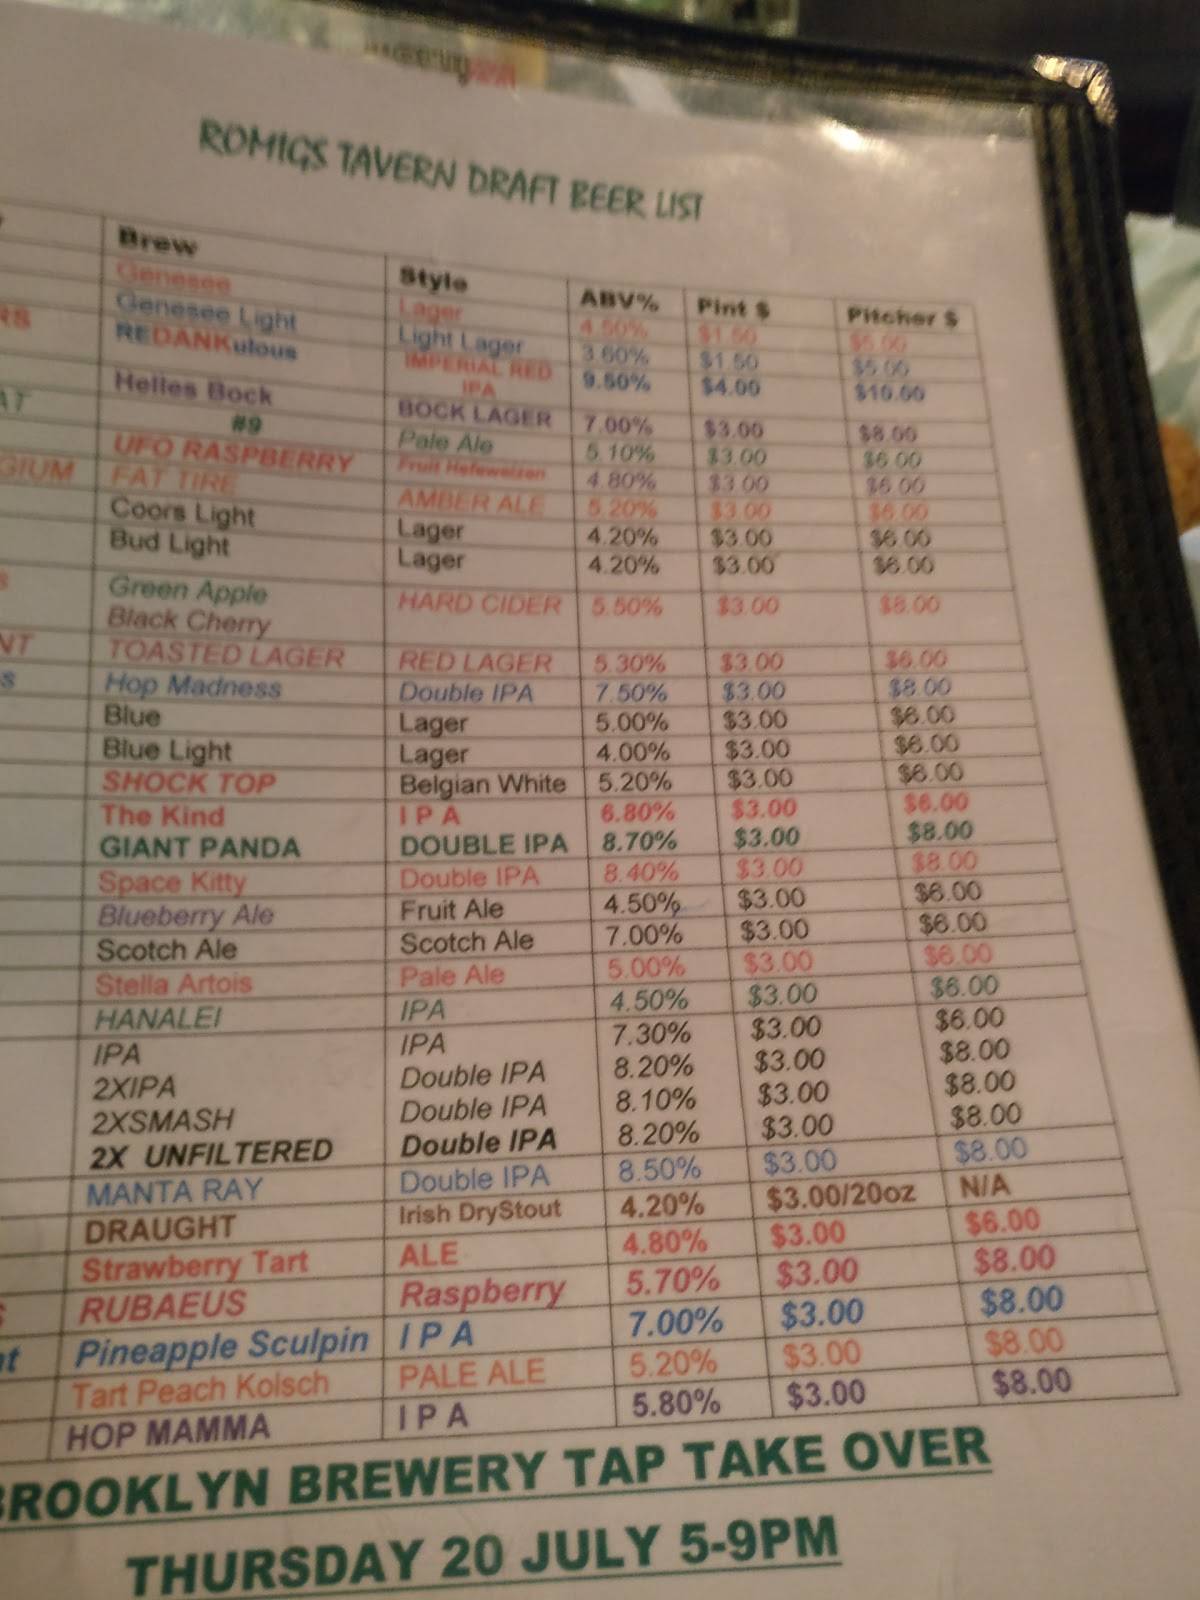 ROMIGS TAVERN DRAFT BEER LIST
Brew Style ABV% Pint $ Pitcher $
Genesee Lager 4.50% $1.50 $5.00
Genesee Light Light Lager 3.60% $1.50 $5.00
RS REDANKulous IMPERIAL RED IPA 9.50% $4.00 $10.00
Helles Bock BOCK LAGER 7.00% $3.00 $8.00
AT #9 Pale Ale 5.10% $3.00 $6.00
UFO RASPBERRY Fruit Hefeweizen 4.80% $3.00 $6.00
GIUM FAT TIRE AMBER ALE 5.20% $3.00 $6.00
Coors Light Lager 4.20% $3.00 $6.00
Bud Light Lager 4.20% $3.00 $6.00
S Green Apple
Black Cherry HARD CIDER 5.50% $3.00 $8.00
NT TOASTED LAGER RED LAGER 5.30% $3.00 $6.00
s Hop Madness Double IPA 7.50% $3.00 $8.00
Blue Lager 5.00% $3.00 $6.00
Blue Light Lager 4.00% $3.00 $6.00
SHOCK TOP Belgian White 5.20% $3.00 $6.00
The Kind I P A 6.80% $3.00 $6.00
GIANT PANDA DOUBLE IPA 8.70% $3.00 $8.00
Space Kitty Double IPA 8.40% $3.00 $8.00
Blueberry Ale Fruit Ale 4.50% $3.00 $6.00
Scotch Ale Scotch Ale 7.00% $3.00 $6.00
Stella Artois Pale Ale 5.00% $3.00 $6.00
HANALEI IPA 4.50% $3.00 $6.00
IPA IPA 7.30% $3.00 $6.00
2XIPA Double IPA 8.20% $3.00 $8.00
2XSMASH Double IPA 8.10% $3.00 $8.00
2X UNFILTERED Double IPA 8.20% $3.00 $8.00
MANTA RAY Double IPA 8.50% $3.00 $8.00
DRAUGHT Irish DryStout 4.20% $3.00/20oz N/A
Strawberry Tart ALE 4.80% $3.00 $6.00
S RUBAEUS Raspberry 5.70% $3.00 $8.00
nt Pineapple Sculpin I P A 7.00% $3.00 $8.00
Tart Peach Kolsch PALE ALE 5.20% $3.00 $8.00
HOP MAMMA I P A 5.80% $3.00 $8.00
BROOKLYN BREWERY TAP TAKE OVER
THURSDAY 20 JULY 5-9PM